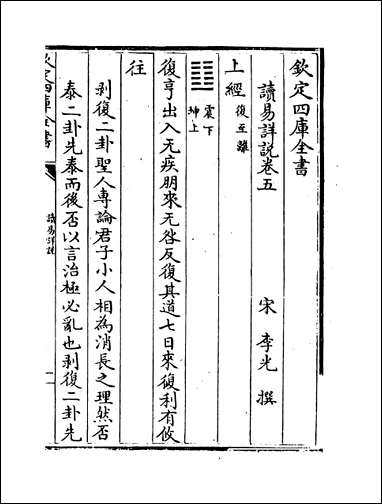 欽定四庫全書
讀易詳說卷五
宋 李光 撰
上經 復至離
震下
坤上
復亨出入无疾朋來无咎反復其道七日來復利有攸
往
剥復二卦聖人専論君子小人相為消長之理然否
泰二卦先泰而後否以言治極必亂也剥復二卦先
欽定四庫全書
讀易詳說
一